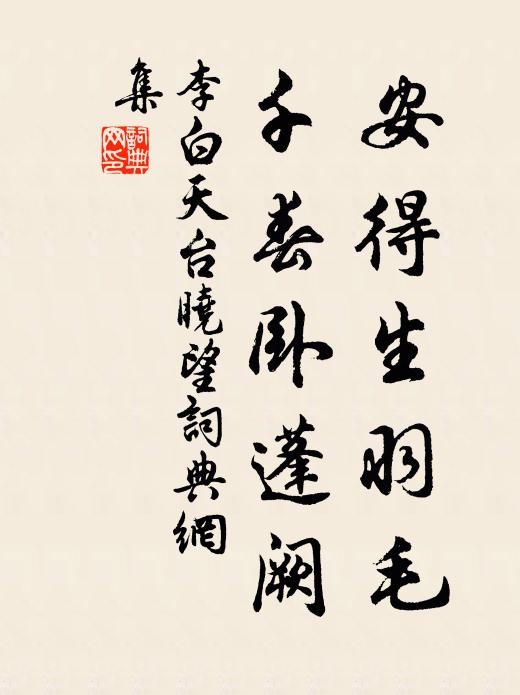 安得生羽毛
千春卧蓬阙
李白天台曉望詞典網
集
詞典網印